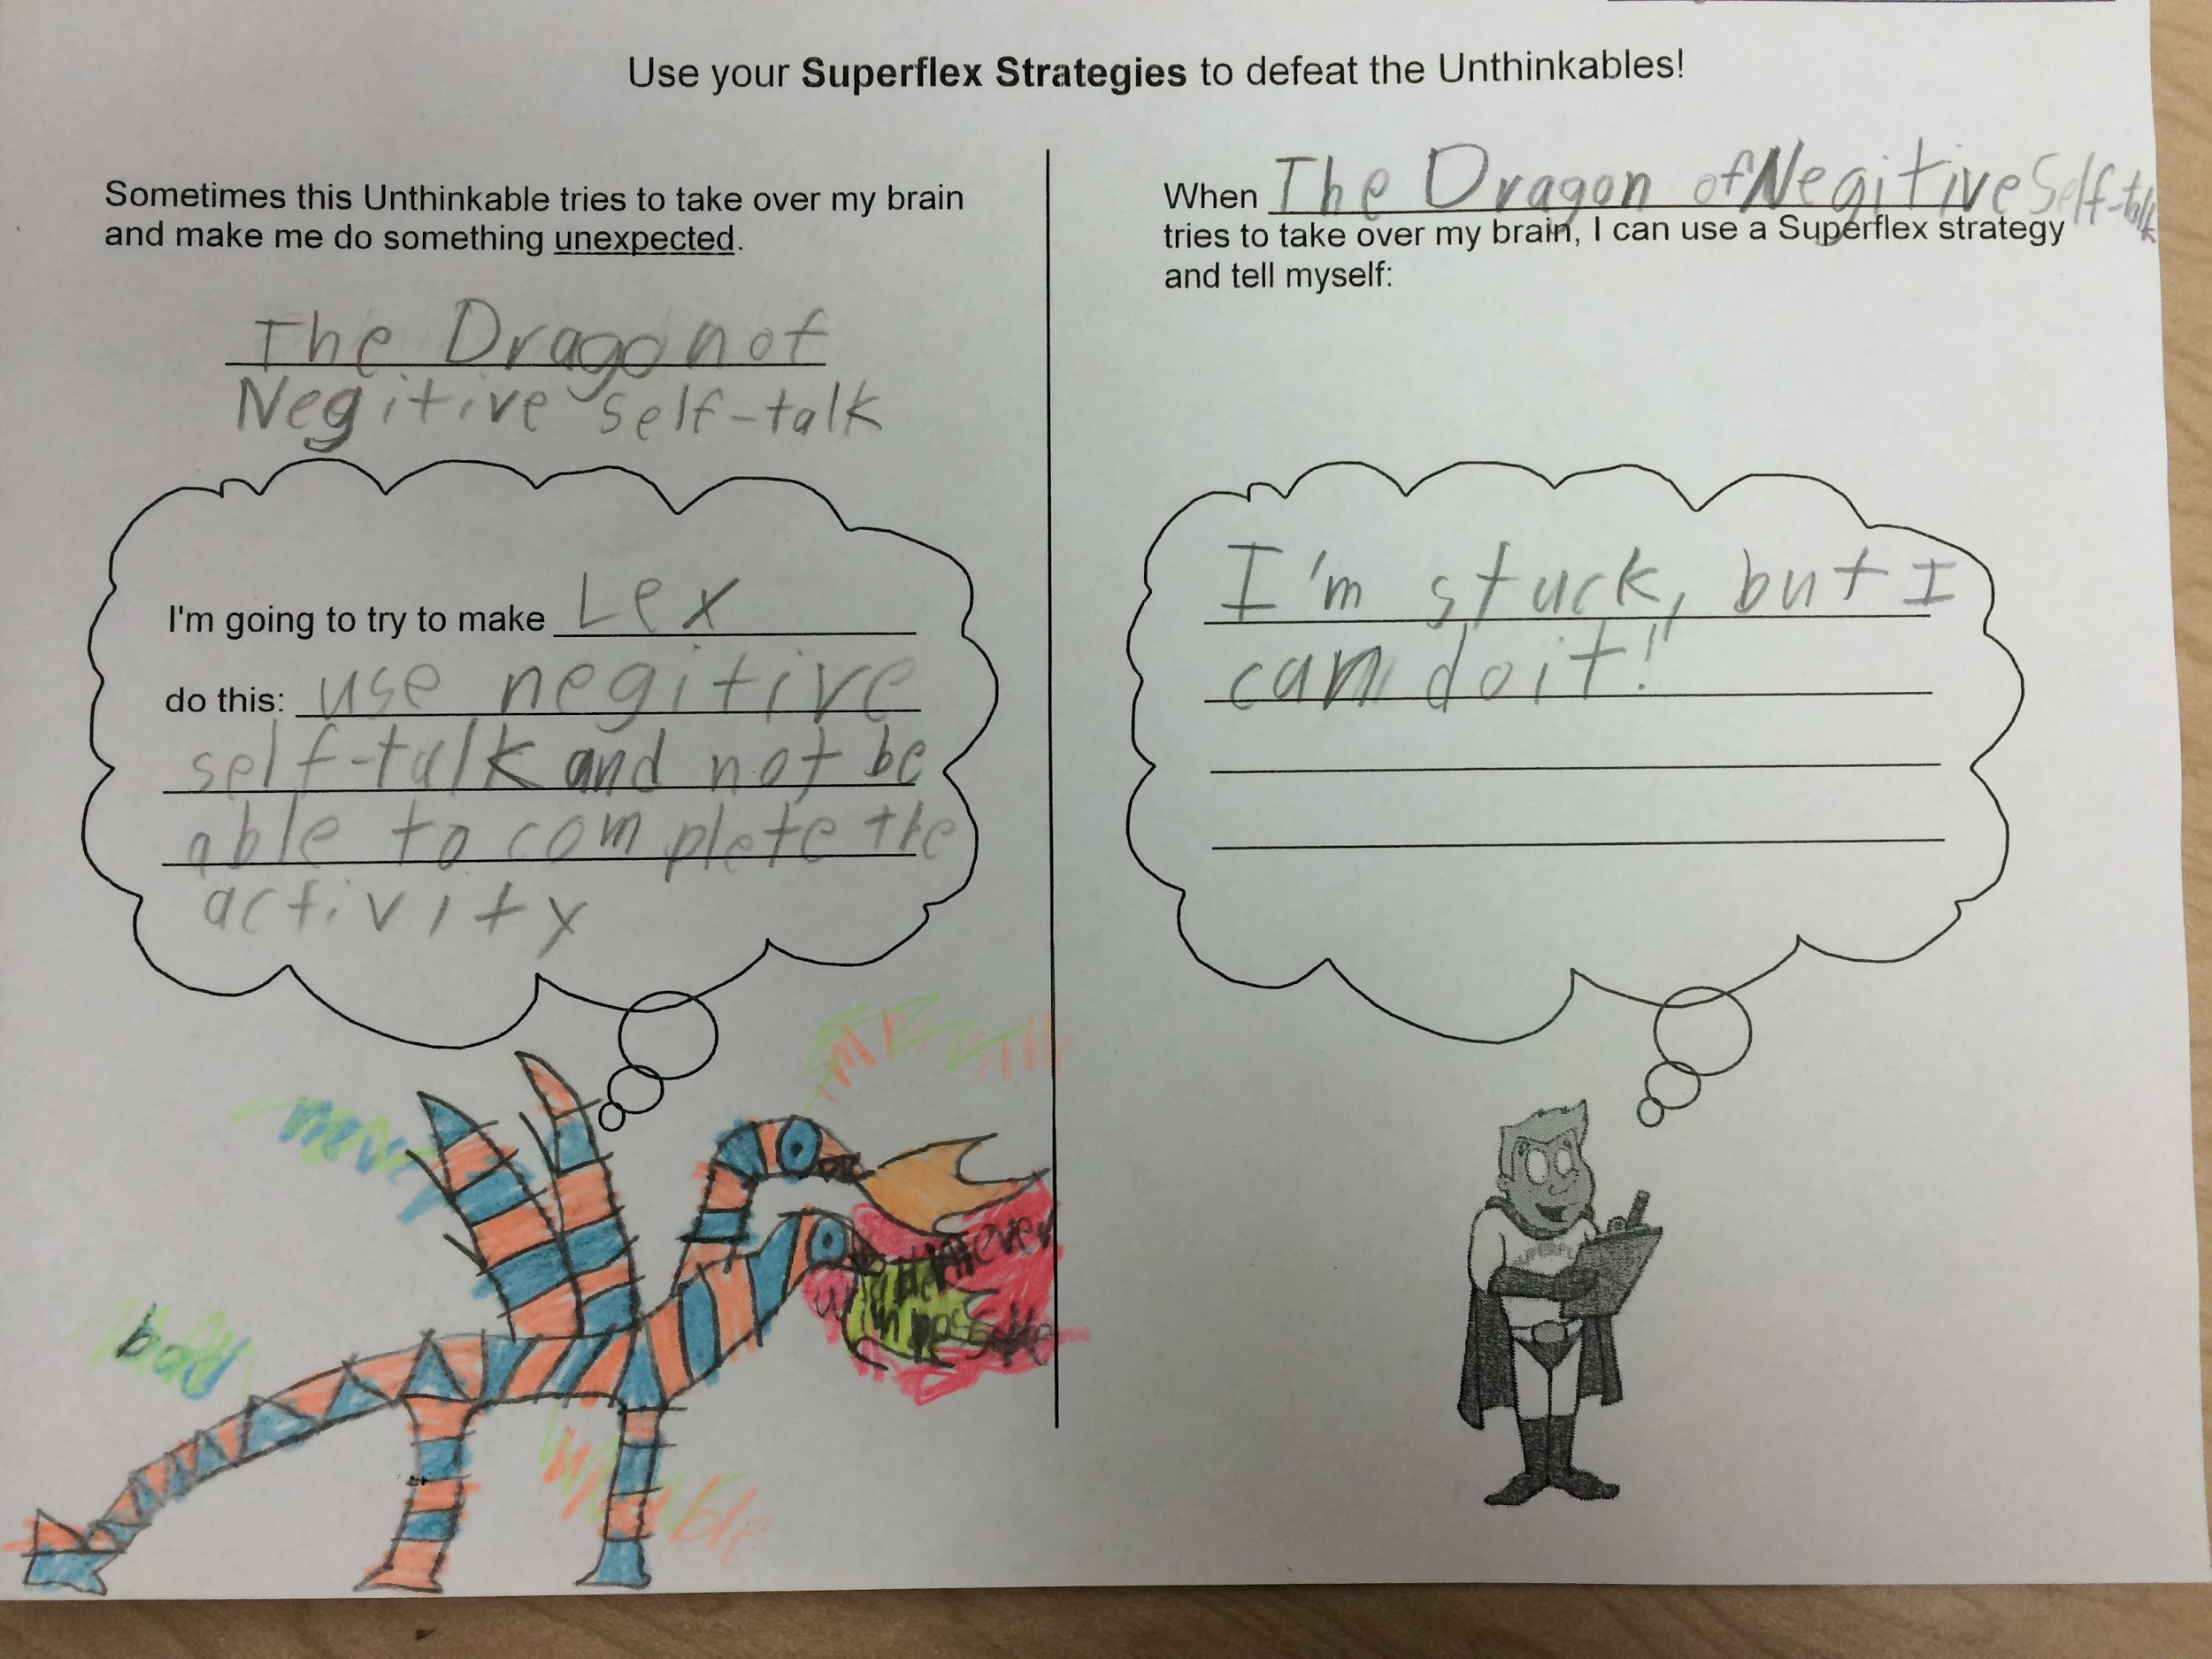 Use your Superflex Strategies to defeat the Unthinkables!
Sometimes this Unthinkable tries to take over my brain
and make me do something unexpected.
The Dragon of
Negitive self-talk
I'm going to try to make Lex
do this: use negitive
self-talk and not be
able to complete the
activity
never
bad
When The Dragon of Negitive Self-talk
tries to take over my brain, I can use a Superflex strategy
and tell myself:
I'm stuck, but I
can do it!"